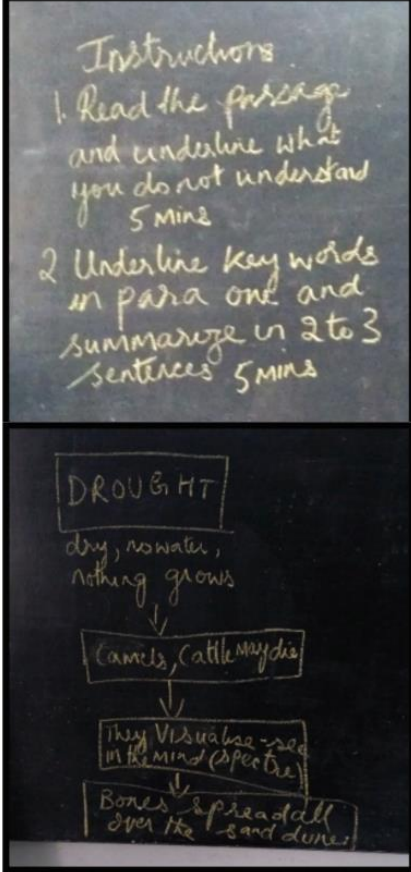 Instructions
1. Read the passage
and underline what
you do not understand
5 Mins
2 Underline key words
in para one and
summarize in 2 to 3
sentences 5 Mins
DROUGHT
dry, no water,
nothing grows
Camels, Cattle may die
They Visualise - see
in the mind (spectre)
Bones spread all
over the sand dunes